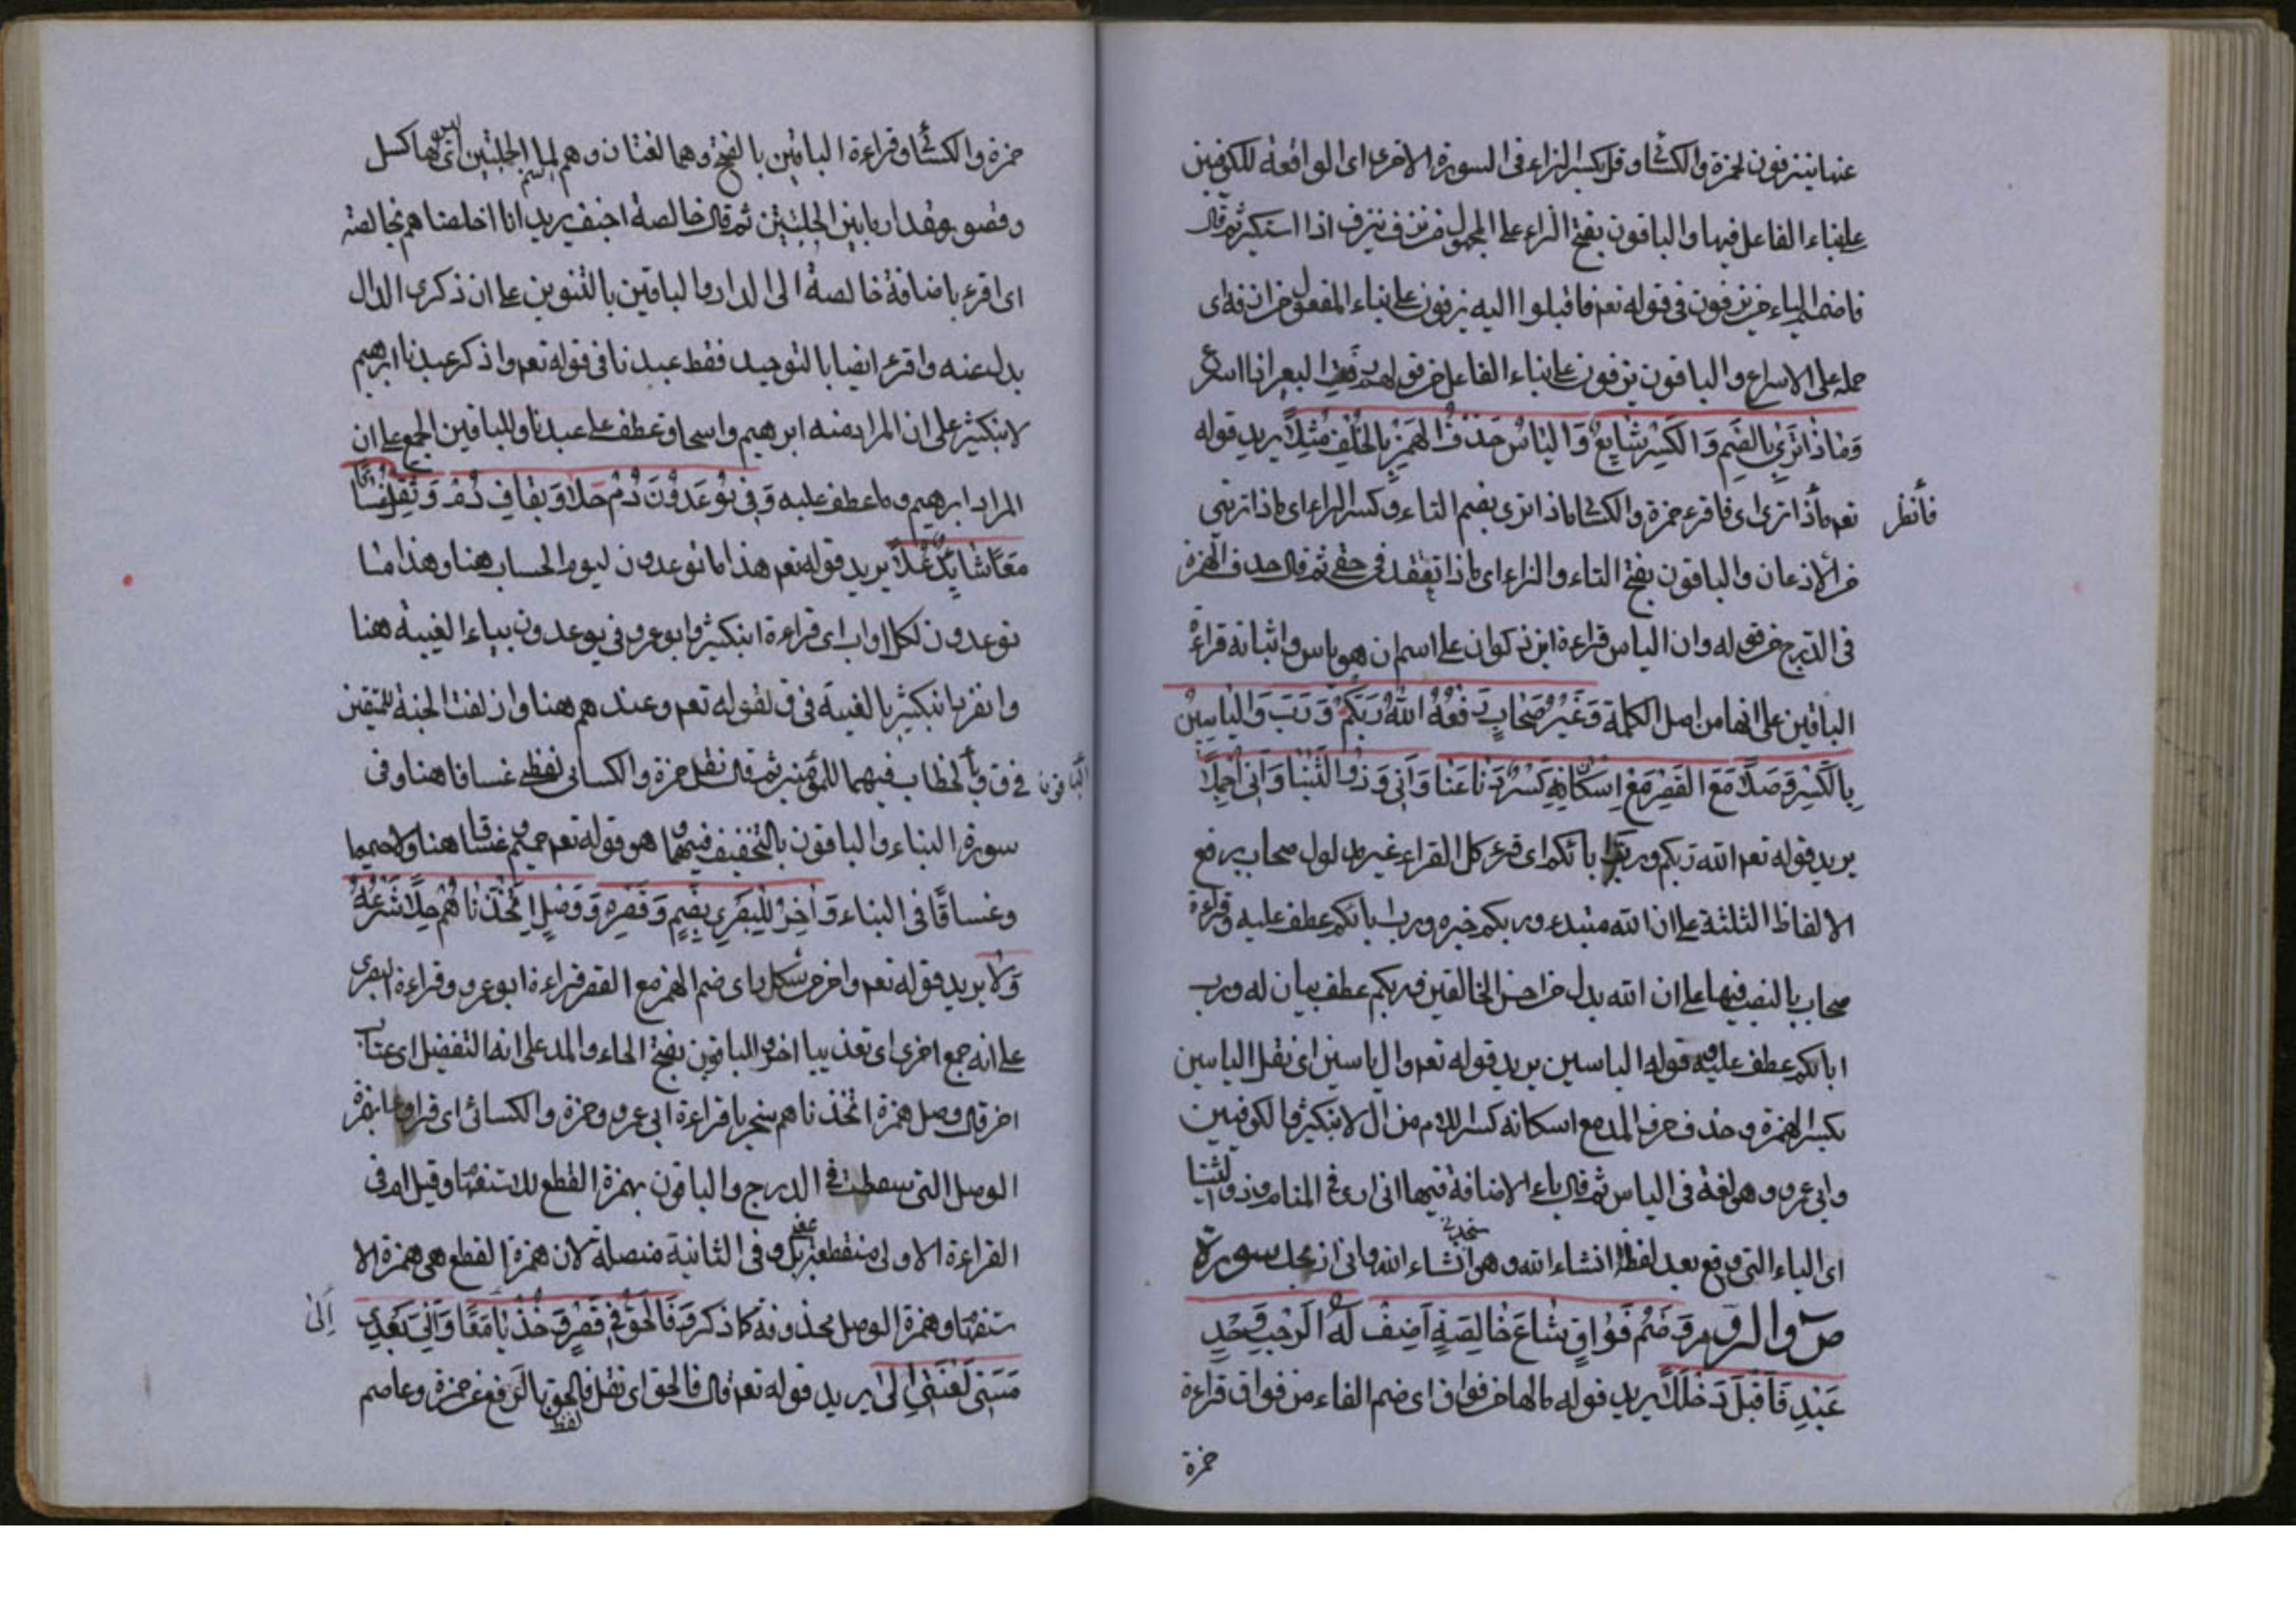 عنها ينزفون لحمزة والكسائى وقل بكسر الزاء فى السورة الاخرى اى الواقعة للكوفيين
على بناء الفاعل فيها والباقون بفتح الزاء على المجهول من نزف ينزف اذا استكر ثم قال
فاضمم الياء من يزفون فى قوله تعم فاقبلوا اليه يزفون على بناء المفعول من ازفه اى
حمله على الاسراع والباقون يزفون على بناء الفاعل من قولهم زف البعير اذا اسرع
وَمَاذَا تَرَى بِالضَّمِ وَالكَسْرِ شَايِعٌ وَاليَاسُ حَذْفُ الهَمْزِ بِالخُلْفِ مُثِّلاَ يريد قوله
تعم ماذا ترى اى فاقرء حمزة والكسائى ماذا ترى بضم التاء وكسر الراء اى ماذا ترينى
فأنظر
من الاذعان والباقون بفتح التاء والراء اى ماذا تعتقد فى حقى ثم قال حذف الهمزة
فى الدرج من قوله وان الياس قراءة ابن ذكوان على اسم ان هو ياس واثباته قراءة
الباقين على انها من اصل الكلمة وَغَيْرُ صِحَابٍ رَفْعُهُ اللهُ رَبَّكُمْ وَرَبَّ وَاِلْيَاسِينَ
بِالكَسْرِ وُصِّلاَ مَعَ القَصْرِ مَعْ اِسْكَانِ كَسْرٍ دَنَا غِنًا وَاَنِّى وَذُو الثُّنْيَا وَاَنِّى اُجْمِلاَ
يريد قوله تعم الله ربكم ورب ابائكم اى قرء كل القراء غير مدلول صحاب برفع
الالفاظ الثلثة على ان الله مبتدء وربكم خبره ورب ابائكم عطف عليه وقراءة
صحاب بالنصب فيها على ان الله بدل من احسن الخالقين وربكم عطف بيان له ورب
ابائكم عطف عليه وقوله الياسين يريد قوله تعم ال ياسين اى نقل الياسين
بكسر الهمزة وحذف حرف المد مع اسكانه كسر اللام من ال لابن كثير والكوفيين
وابى عمرو وهو لغة فى الياس ثم قال ياء الاضافة فيها انى ارى فى المنام وذو الثنيا
اى الياء التى وقع بعد لفظ انشاء الله وهو ستجدنى انشاء الله وانى اذبحك سورة
صٓ والزمر وَضَمُّ فُوَاقٍ شَاعَ خَالِصَةٍ اَضِفْ لَهُ الرَّحْبُ وَحِّدِ
عَبْدِنَا قَبْلُ دُخْلُلاَ يريد قوله مالها من فواق اى ضم الفاء من فواق قراءة
حمزة
حمزة والكسائى وقراءة الباقين بالفتح وهما لغتان وهم لما بين الحلبتين اى مالها كسل
وقصور مقدار ما بين الحلبتين ثم قال خالصة اضف يريد انا اخلصناهم بخالصة
اى اقرء باضافة خالصة الى الدار والباقين بالتنوين على ان ذكرى الدال
بدل عنه واقرء ايضا بالتوحيد فقط عبدنا فى قوله تعم واذكر عبدنا ابرهيم
لابن كثير على ان المراد منه ابرهيم واسحاق عطف على عبدنا وللباقين الجمع على ان
المراد ابرهيم وما عطف عليه وَفِى يُوعَدُونَ دُمْ حُلاً وَبِقَافٍ دُمْ وَثَقِّلْ غَسَّاقًا
مَعًا شَايِدٌ عُلاَ يريد قوله تعم هذا ما توعدون ليوم الحساب هنا وهذا ما
توعدون لكل اواب اى قراءة ابن كثير وابو عمرو فى يوعدون بياء الغيبة هنا
وانفرد ابن كثير بالغيبة فى ق لقوله تعم وعندهم هنا وازلفت الجنة للمتقين
الباقون
فى ق وبالخطاب فيهما للمؤمنين ثم قال نقل حمزة والكسائى لفظى غساقا هنا وفى
سورة النباء والباقون بالتخفيف فيهما وهو قوله تعم حميم وغساقا هنا والا حميما
وغساقًا فى النباء وَاَخِرُ لِلْبَصْرِى بِضَمٍ وَقَصْرِهِ وَوَصْلُ اِتَّخَذْنَاهُمْ حَلاَ شَرْعُهُ
وِلاَ يريد قوله تعم واخر من شكله اى ضم الهمز مع القصر قراءة ابو عمرو وقراءة البصرى
على انه جمع اخرى اى تعذيبا اخر والباقون بفتح الحاء والمد على انه التفضيل اى عتاب
اخر قال وصل همزة اتخذناهم سخريا قراءة ابى عمرو وحمزة والكسائى اى قراوها بهمزة
الوصل التى سقطت فى الدرج والباقون بهمزة القطع للاستفهام وقيل ام فى
القراءة الاولى منقطعة بمعنى بل وفى الثانية متصلة لان همزة القطع هى همزة الا
ستفهام وهمزة الوصل محذوفة كما ذكر وَفَالْحَقُّ فِى نَصْرٍ وَخُذْ يَاءَ لِى مَعًا وَاِنِّى وَبَعْدِى
اِلىٰ
مَسَّنِى لَعْنَتِى اِلىٰ يريد قوله تعم قال فالحق اى نقل لفظ فالحق بالرفع عن حمزة وعاصم